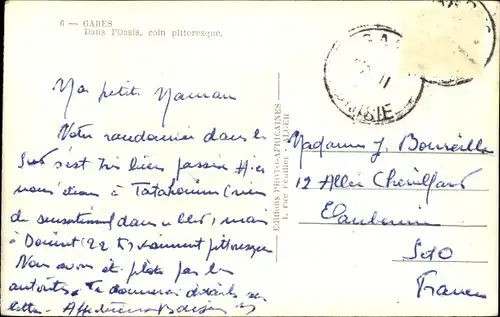 6 — GABÈS
Dans l'Oasis, coin pittoresque.
Ma petite Maman
Notre randonnée dans le
Sud s'est très bien passée. Hier
nous étions à Tatahouine (rien
de sensationnel dans le bled, mais
à Douirat (22 k) vraiment pittoresque
Nous avons été pilotés par les
autorités. Te donnerai détails sur
lettre. Affectueux Baisers
Editions PHOTO-AFRICAINES
1, rue Feuillet - ALGER
TUNISIE
Madame J.
12 Allée Chevillard
S et O
France